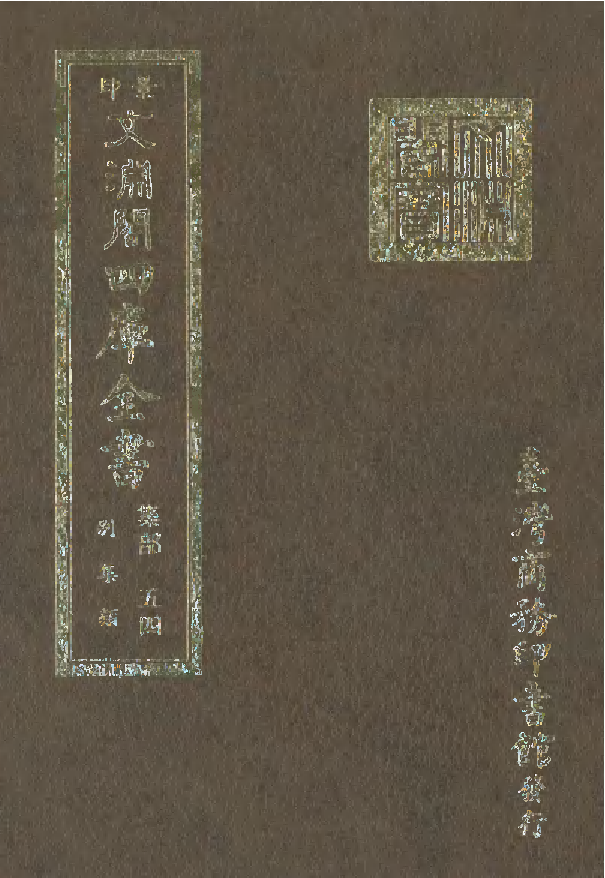 景印
文淵閣四庫全書
集部 五四
別集類
臺灣商務印書館發行